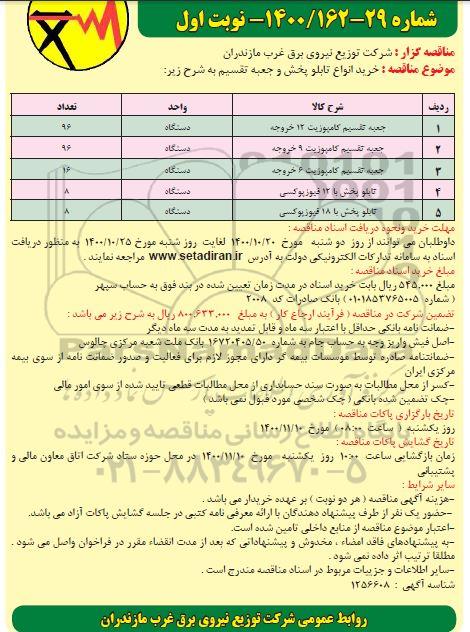 شماره ۲۹-۱۴۰۰/۱۶۲- نوبت اول
مناقصه گزار : شرکت توزیع نیروی برق غرب مازندران
موضوع مناقصه : خرید انواع تابلو پخش و جعبه تقسیم به شرح زیر:
ردیف شرح کالا واحد تعداد
۱ جعبه تقسیم کامپوزیت ۱۲ خروجه دستگاه ۹۶
۲ جعبه تقسیم کامپوزیت ۹ خروجه دستگاه ۹۶
۳ جعبه تقسیم کامپوزیت ۶ خروجه دستگاه ۱۶
۴ تابلو پخش با ۱۲ فیوزپوکسی دستگاه ۸
۵ تابلو پخش با ۱۸ فیوزپوکسی دستگاه ۸
مهلت خرید ونحوه دریافت اسناد مناقصه :
داوطلبان می توانند از روز دو شنبه مورخ ۱۴۰۰/۱۰/۲۰ لغایت روز شنبه مورخ ۱۴۰۰/۱۰/۲۵ به منظور دریافت
اسناد به سامانه تدارکات الکترونیکی دولت به آدرس www.setadiran.ir مراجعه نمایند .
مبلغ خرید اسناد مناقصه :
مبلغ ۵۴۵,۰۰۰ ریال بابت خرید اسناد در مدت زمان تعیین شده در بند فوق به حساب سپهر
( شماره ۰۱۰۱۸۵۳۷۶۵۰۰۵) بانک صادرات کد ۲۰۰۸
تضمین شرکت در مناقصه ( فرآیند ارجاع کار ) به مبلغ ۸۰۰,۶۳۳,۰۰۰ ریال به شرح زیر می باشد :
-ضمانت نامه بانکی حداقل با اعتبار سه ماه و قابل تمدید به مدت سه ماه دیگر
-اصل فیش واریز وجه به حساب جام به شماره ۱۶۷۲۲۴۰۵/۵۰ بانک ملت شعبه مرکزی چالوس
-ضمانتنامه صادره توسط موسسات بیمه گر دارای مجوز لازم برای فعالیت و صدور ضمانت نامه از سوی بیمه
مرکزی ایران
-کسر از محل مطالبات به صورت سند حسابداری از محل مطالبات قطعی تایید شده از سوی امور مالی
-چک تضمین شده بانکی ( چک شخصی مورد قبول نمی باشد )
تاریخ بارگزاری پاکات مناقصه :
روز یکشنبه ( ساعت ۰۸:۰۰ ) مورخ ۱۴۰۰/۱۱/۱۰
تاریخ گشایش پاکات مناقصه :
زمان بازگشایی ساعت ۱۰:۰۰ روز یکشنبه مورخ ۱۴۰۰/۱۱/۱۰ در محل حوزه ستاد شرکت اتاق معاون مالی و
پشتیبانی
سایر شرایط :
-هزینه آگهی مناقصه ( هر دو نوبت ) بر عهده خریدار می باشد .
-حضور یک نفر از طرف پیشنهاد دهندگان با ارائه معرفی نامه کتبی در جلسه گشایش پاکات آزاد می باشد.
-اعتبار موضوع مناقصه از منابع داخلی تامین شده است.
-به پیشنهادهای فاقد امضاء ، مخدوش و پیشنهاداتی که بعد از مدت انقضاء مقرر در فراخوان واصل می شود .
مطلقا ترتیب اثر داده نمی شود .
-سایر اطلاعات و جزییات مربوط در اسناد مناقصه مندرج است .
شناسه آگهی : ۱۲۵۶۶۰۸
روابط عمومی شرکت توزیع نیروی برق غرب مازندران